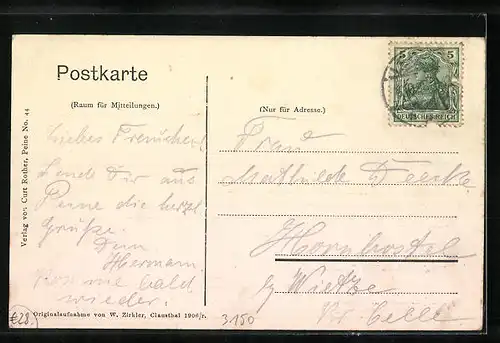 Postkarte
(Raum für Mitteilungen.)
(Nur für Adresse.)
5 5
DEUTSCHES REICH
Liebes Frauchen!
Sende Dir aus
Peine die herzl.
Grüße.
Dein
Hermann
wieder.
Frau
Mathilde Deecke
Hornbostel
b/ Wietze
Kr. Celle.
Verlag von Curt Rother, Peine No. 44
Originalaufnahme von W. Zirkler, Clausthal 1906/r.
€28.
3.150